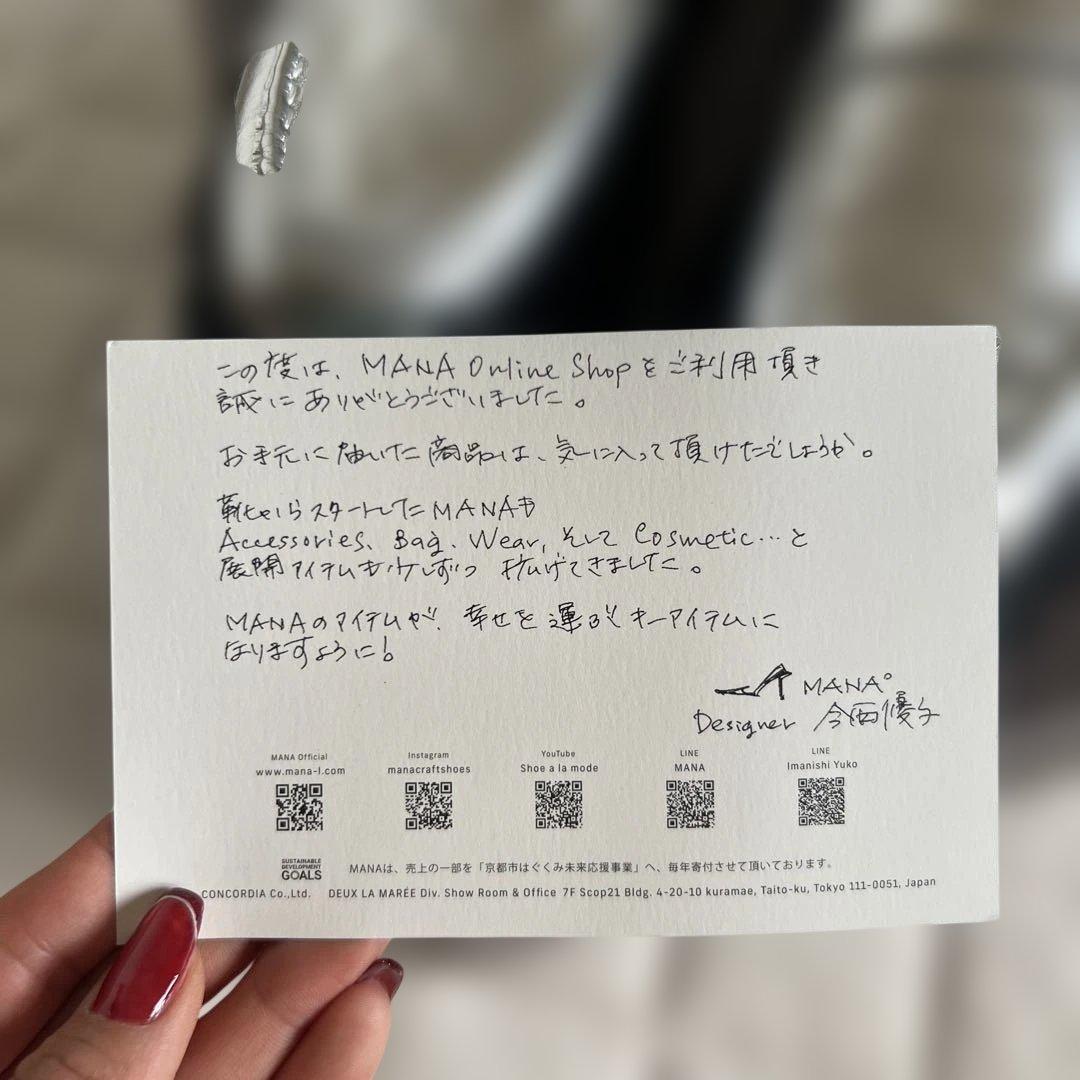 この度は、MANA Online Shopをご利用頂き
誠にありがとうございました。
お手元に届いた商品は、気に入って頂けたでしょうか。
靴からスタートしたMANAも
Accessories、Bag、Wear、そしてCosmetic…と
展開アイテムも少しずつ拡げてきました。
MANAのアイテムが、幸せを運ぶキーアイテムに
なりますように!
MANA°
Designer 今西優子
MANA Official
www.mana-l.com
Instagram
manacraftshoes
YouTube
Shoe a la mode
LINE
MANA
LINE
Imanishi Yuko
SUSTAINABLE
DEVELOPMENT
GOALS
MANAは、売上の一部を「京都市はぐくみ未来応援事業」へ、毎年寄付させて頂いております。
CONCORDIA Co.,Ltd. DEUX LA MARÉE Div. Show Room & Office 7F Scop21 Bldg. 4-20-10 kuramae, Taito-ku, Tokyo 111-0051, Japan